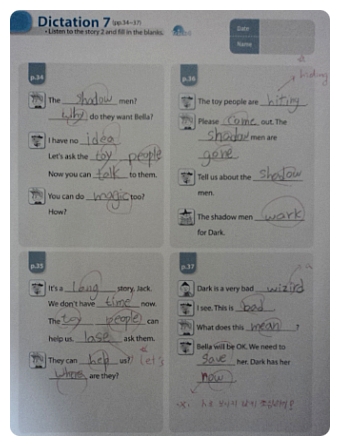 Dictation 7 (pp.34~37)
• Listen to the story 2 and fill in the blanks.
Date
Name
p.34
The shadow men?
Why do they want Bella?
I have no idea
Let's ask the toy people
Now you can talk to them.
You can do magic too?
How?
p.36
hiding
The toy people are hiting
Please come out. The
shadow men are
gone
Tell us about the shadow
men.
The shadow men wark
for Dark.
p.35
It's a long story, Jack.
We don't have time now.
The toy people can
help us. lase ask them.
Let's
They can help us?
where are they?
p.37
a
Dark is a very bad wizird
I see. This is bad
What does this mean
Bella will be OK. We need to
save her. Dark has her
now